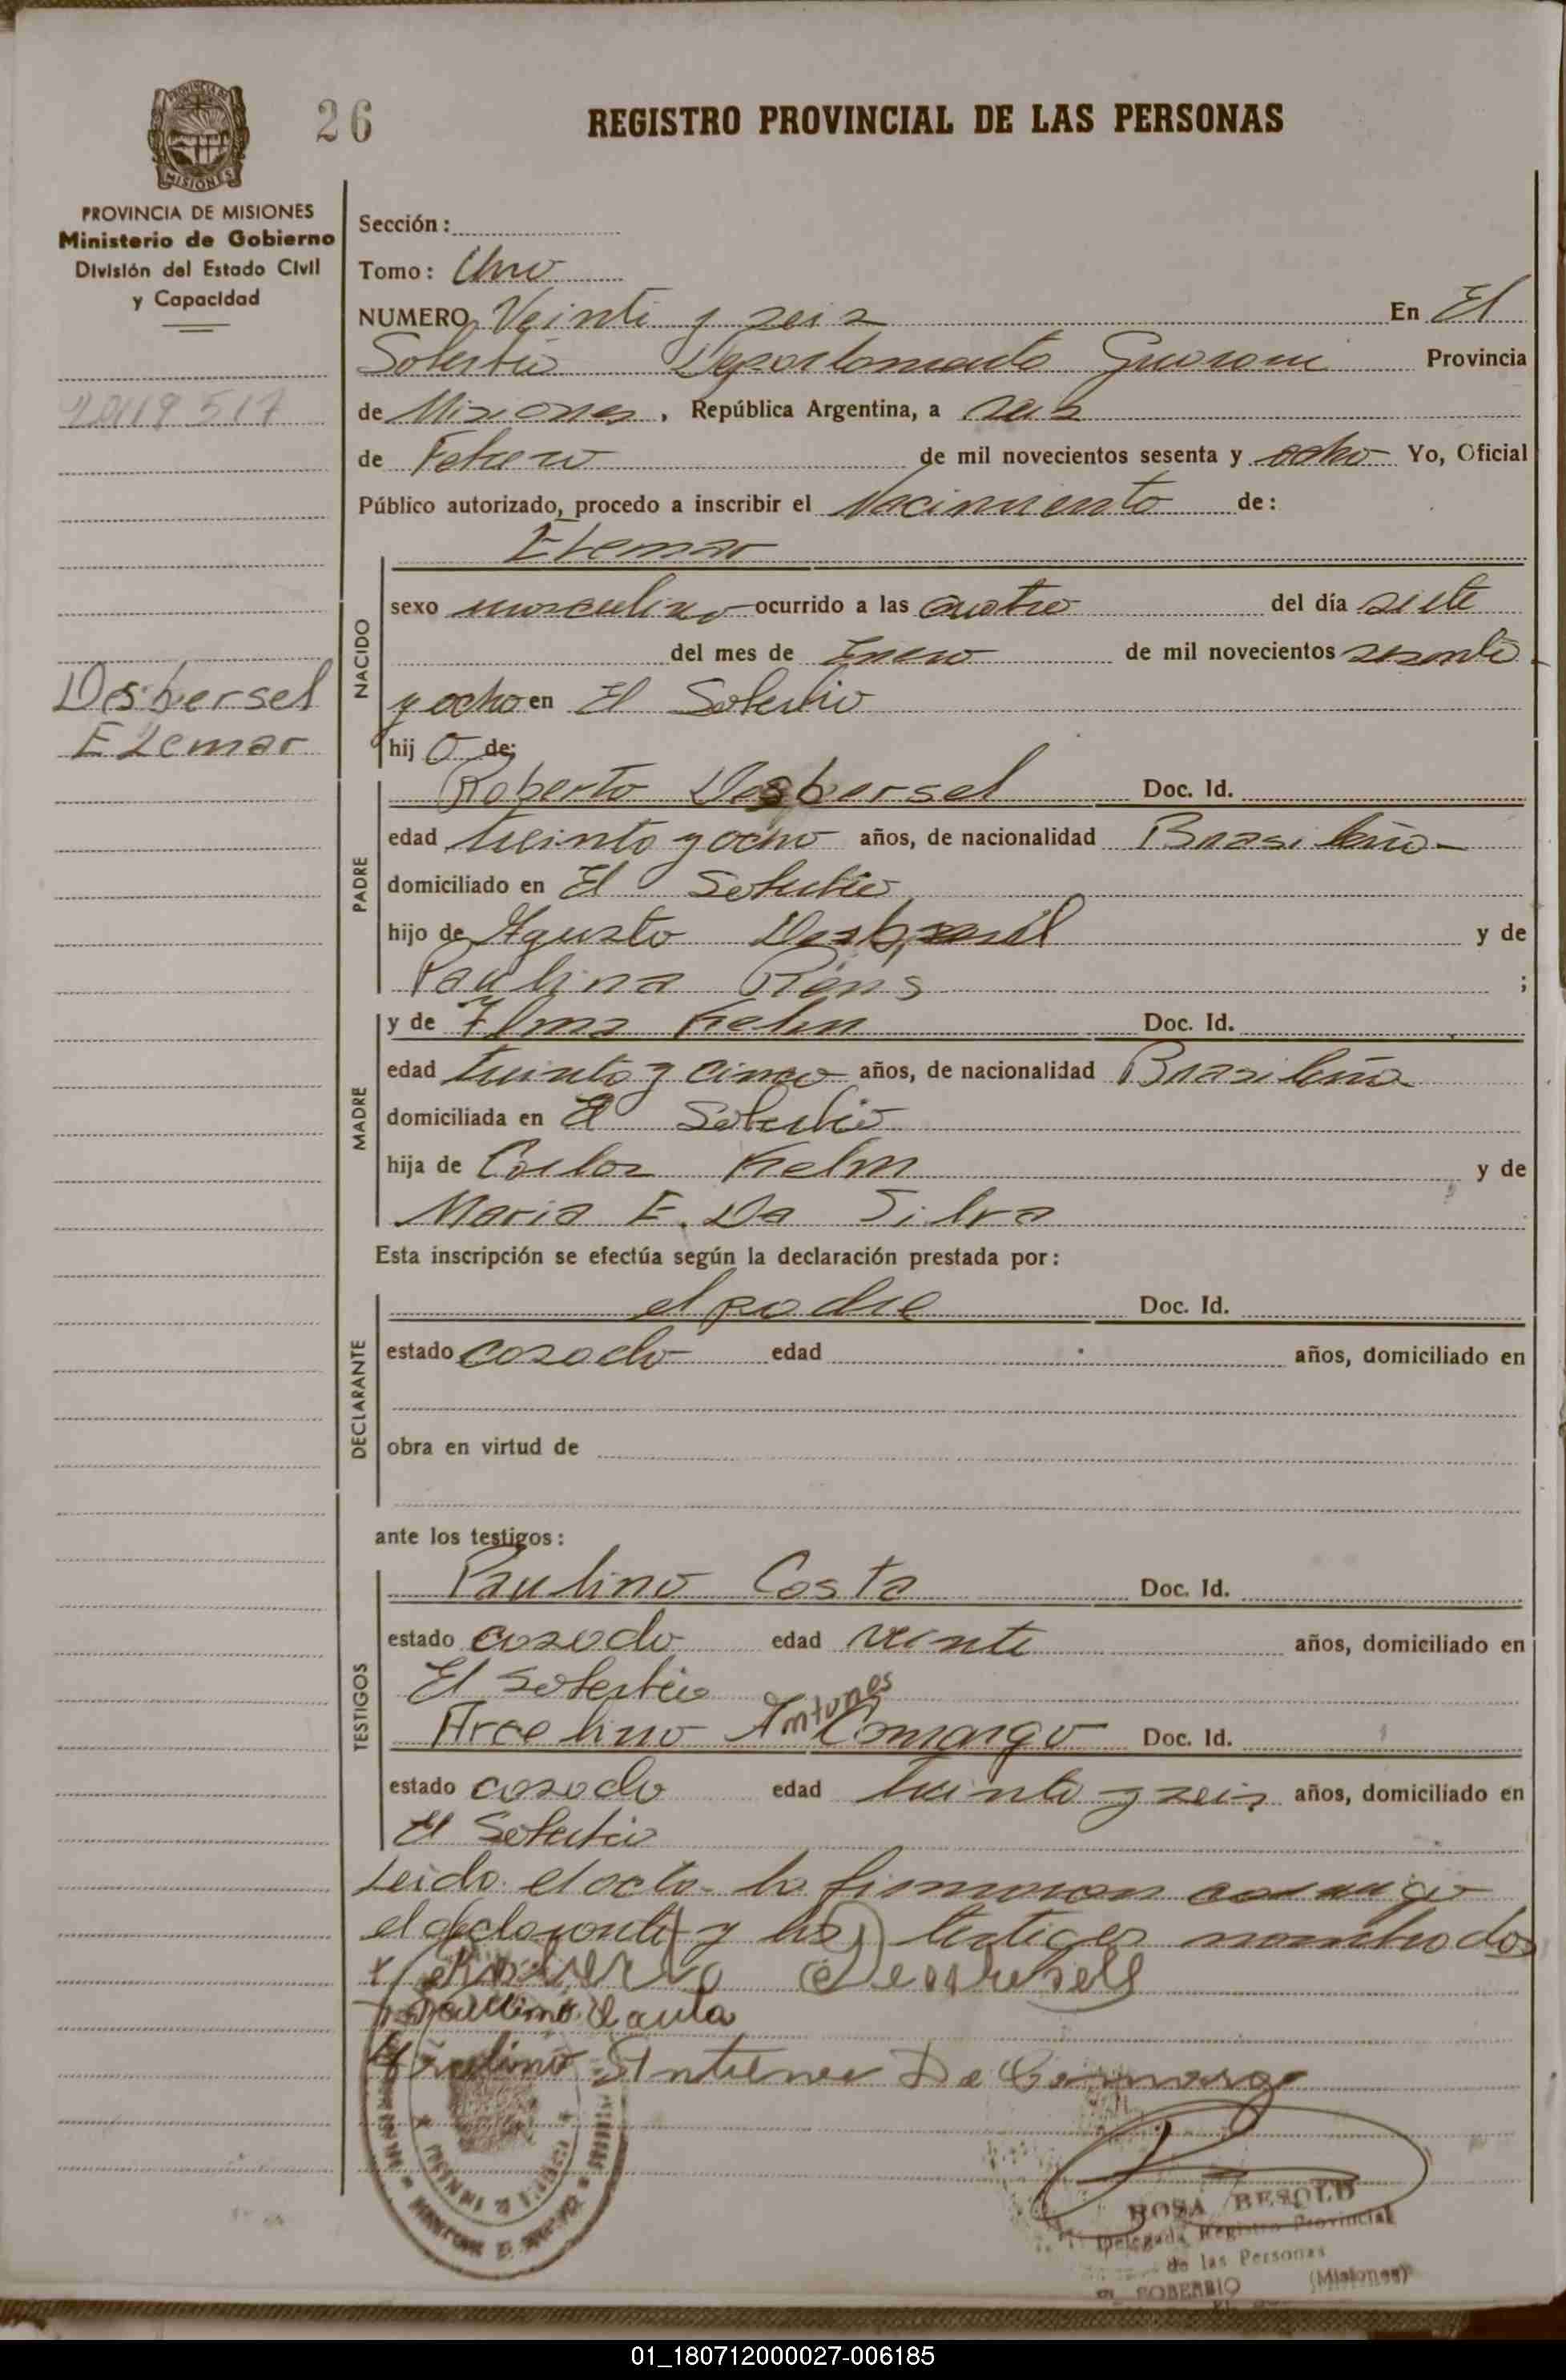 26
REGISTRO PROVINCIAL DE LAS PERSONAS
PROVINCIA DE MISIONES
Ministerio de Gobierno
División del Estado Civil
y Capacidad
Sección:
Tomo: Uno
NUMERO Veinti y seis En El
Soberbio Departamento Guarani Provincia
de Misiones, República Argentina, a seis
de Febrero de mil novecientos sesenta y ocho Yo, Oficial
Público autorizado, procedo a inscribir el Nacimiento de:
Elemar
NACIDO
sexo masculino ocurrido a las cuatro del día siete
del mes de Enero de mil novecientos sesenta
y ocho en El Soberbio
hij o de:
Desbersel
Elemar
PADRE
Roberto Desbersel Doc. Id.
edad treinta y ocho años, de nacionalidad Brasileño
domiciliado en El Soberbio
hijo de Agusto y de
Paulina Rens ;
MADRE
y de Ilma Kelm Doc. Id.
edad treinta y cinco años, de nacionalidad Brasileña
domiciliada en El Soberbio
hija de Carlos Kelm y de
Maria E. Da Silva
Esta inscripción se efectúa según la declaración prestada por:
DECLARANTE
el padre Doc. Id.
estado casado edad años, domiciliado en
obra en virtud de
ante los testigos:
TESTIGOS
Paulino Costa Doc. Id.
estado casado edad veinte años, domiciliado en
El Soberbio
Arcelino Antunes Camargo Doc. Id.
estado casado edad treinta y seis años, domiciliado en
El Soberbio
Leido el acta la firmaron conmigo
el declarante y los testigos nombrados
De Camargo
ROSA BESOLD
Delegada Registro Provincial
de las Personas
EL SOBERBIO (Misiones)
01_180712000027-006185